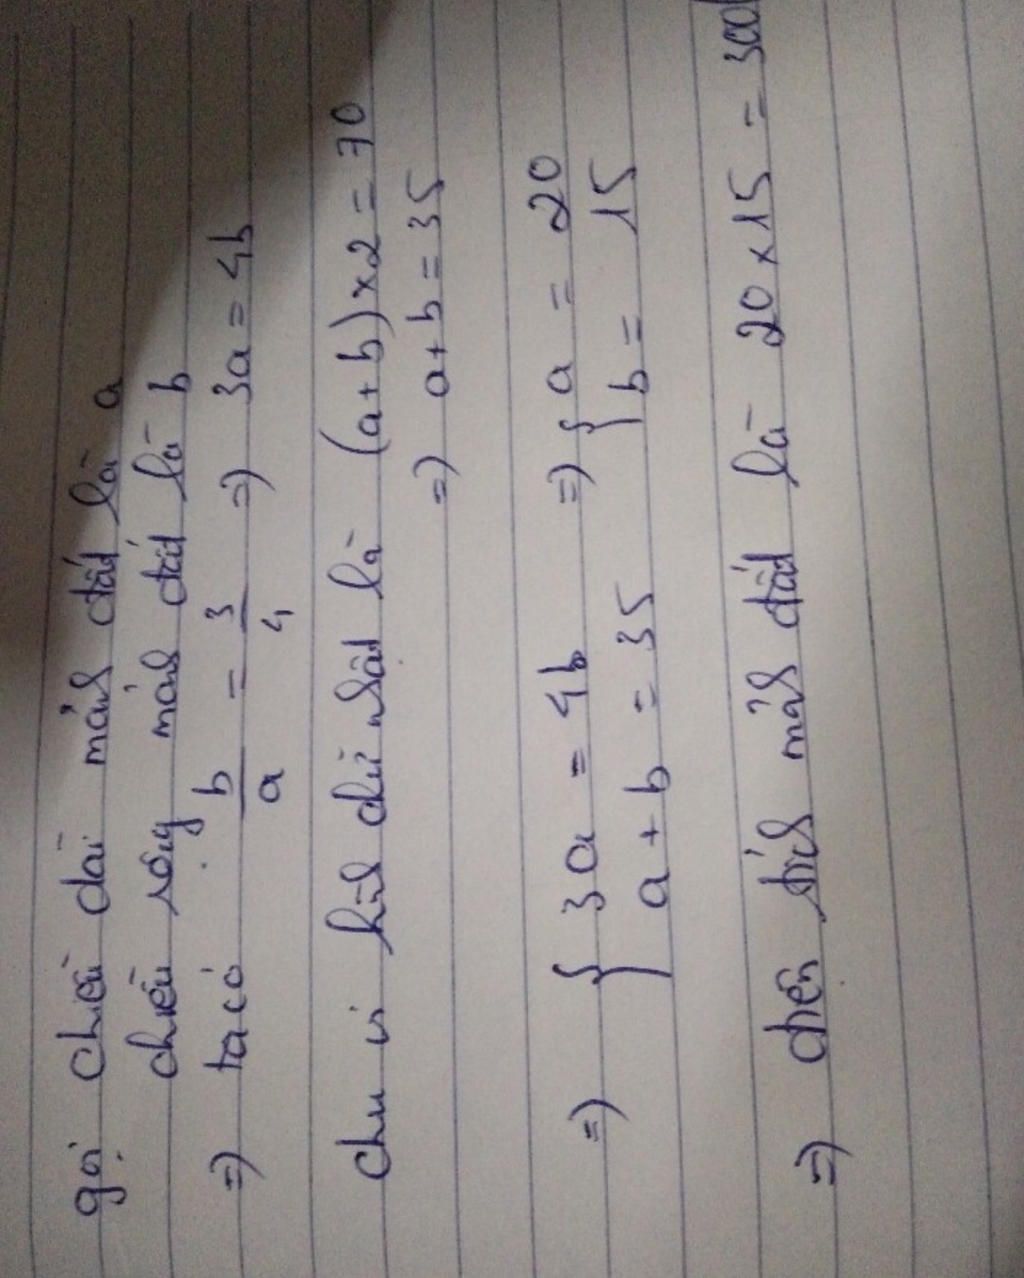 gọi chiều dài mảnh đất là a
chiều rộng mảnh đất là b
=) ta có b/a = 3/4 =) 3a = 4b
chu vi hình chữ nhật là (a+b)x2 = 70
=) a+b = 35
=) { 3a = 4b =) { a = 20
a + b = 35 b = 15
=) diện tích mảnh đất là 20 x 15 = 300